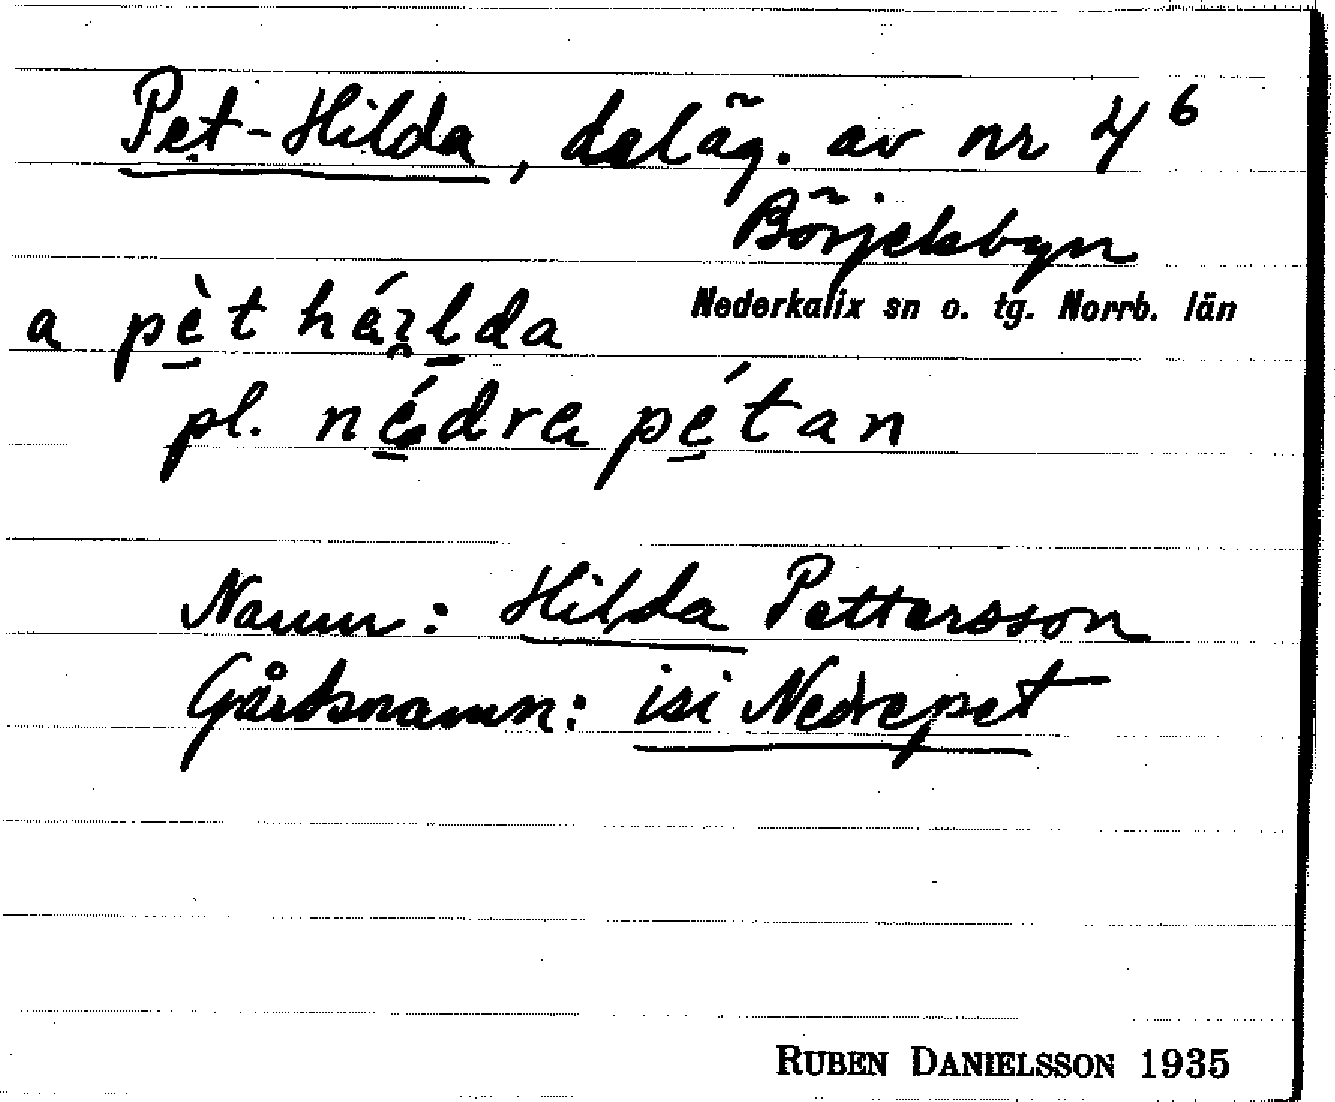 Pet-Hilda, deläg. av nr 4⁶
Börjelsbyn
Nederkalix sn o. tg. Norrb. län
a pèt héilda
pl. nédra pétan
Namn: Hilda Pettersson
Gårdsnamn: isi Nedrepet
RUBEN DANIELSSON 1935